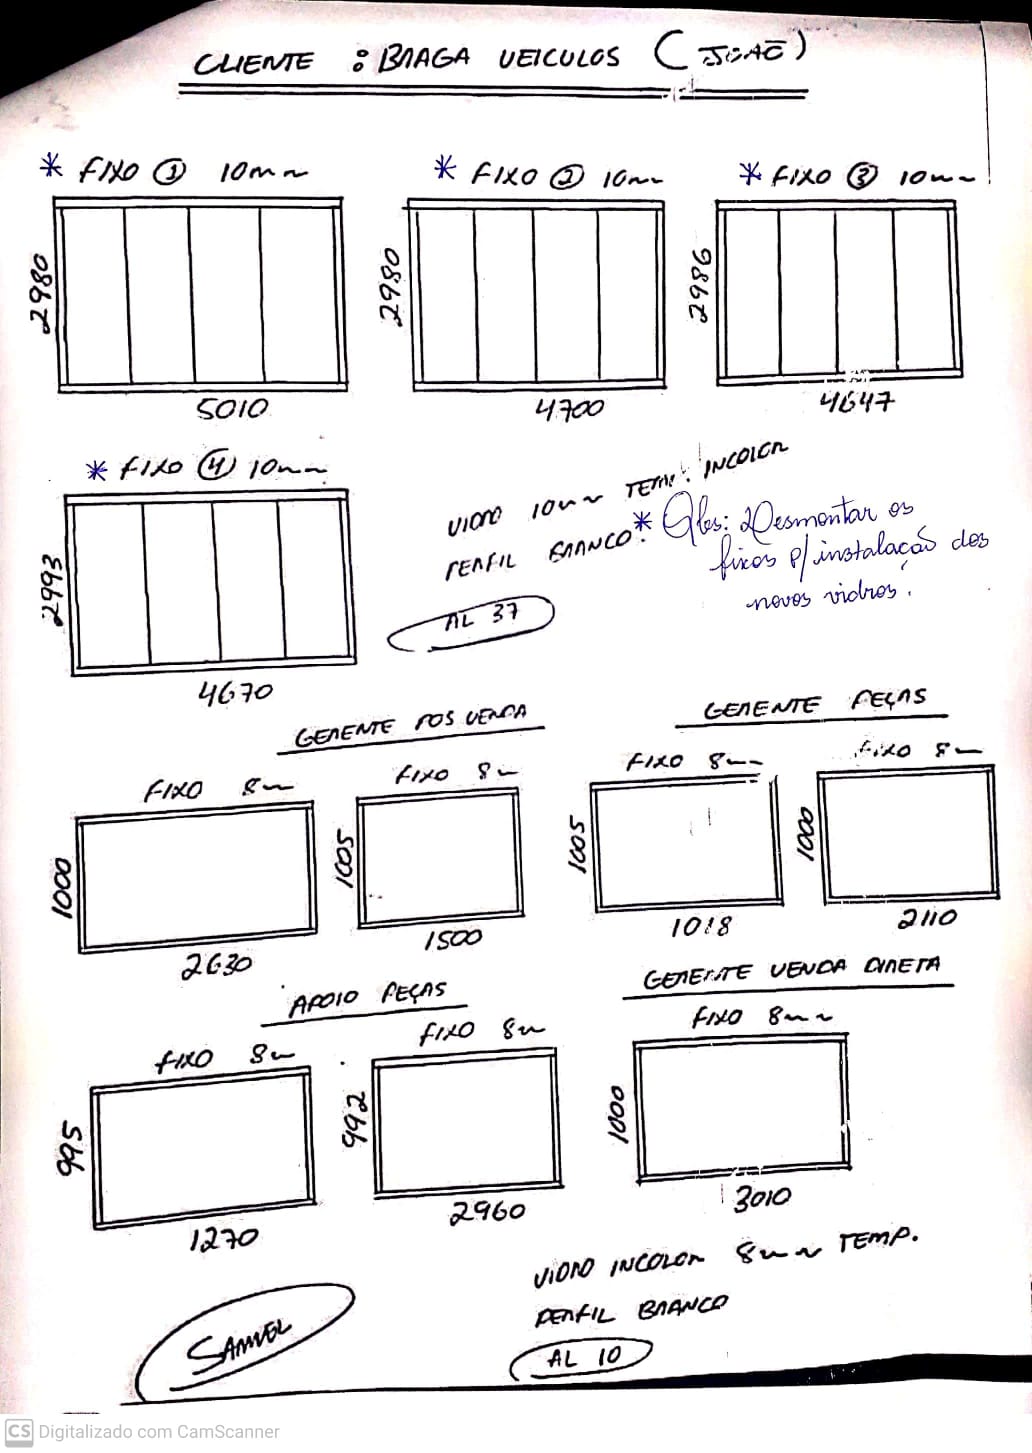 CLIENTE : BRAGA VEICULOS (JOAO)
* FIXO ① 10mm
* FIXO ② 10mm
* FIXO ③ 10mm
2980
2980
2986
5010
4700
4647
* FIXO ④ 10mm
2993
4670
VIDRO 10mm TEMP. INCOLOR
PERFIL BRANCO.
AL 37
* Obs: Desmontar os
fixos p/ instalação dos
novos vidros.
GERENTE POS VENDA
GERENTE PEÇAS
FIXO 8m
FIXO 8m
FIXO 8mm
FIXO 8m
1000
1005
1005
1000
2630
1500
1018
2110
APOIO PEÇAS
GERENTE VENDA DIRETA
FIXO 8m
FIXO 8m
FIXO 8mm
995
992
1000
1270
2960
3010
VIDRO INCOLOR 8mm TEMP.
PERFIL BRANCO
AL 10
SAMUEL
CS Digitalizado com CamScanner